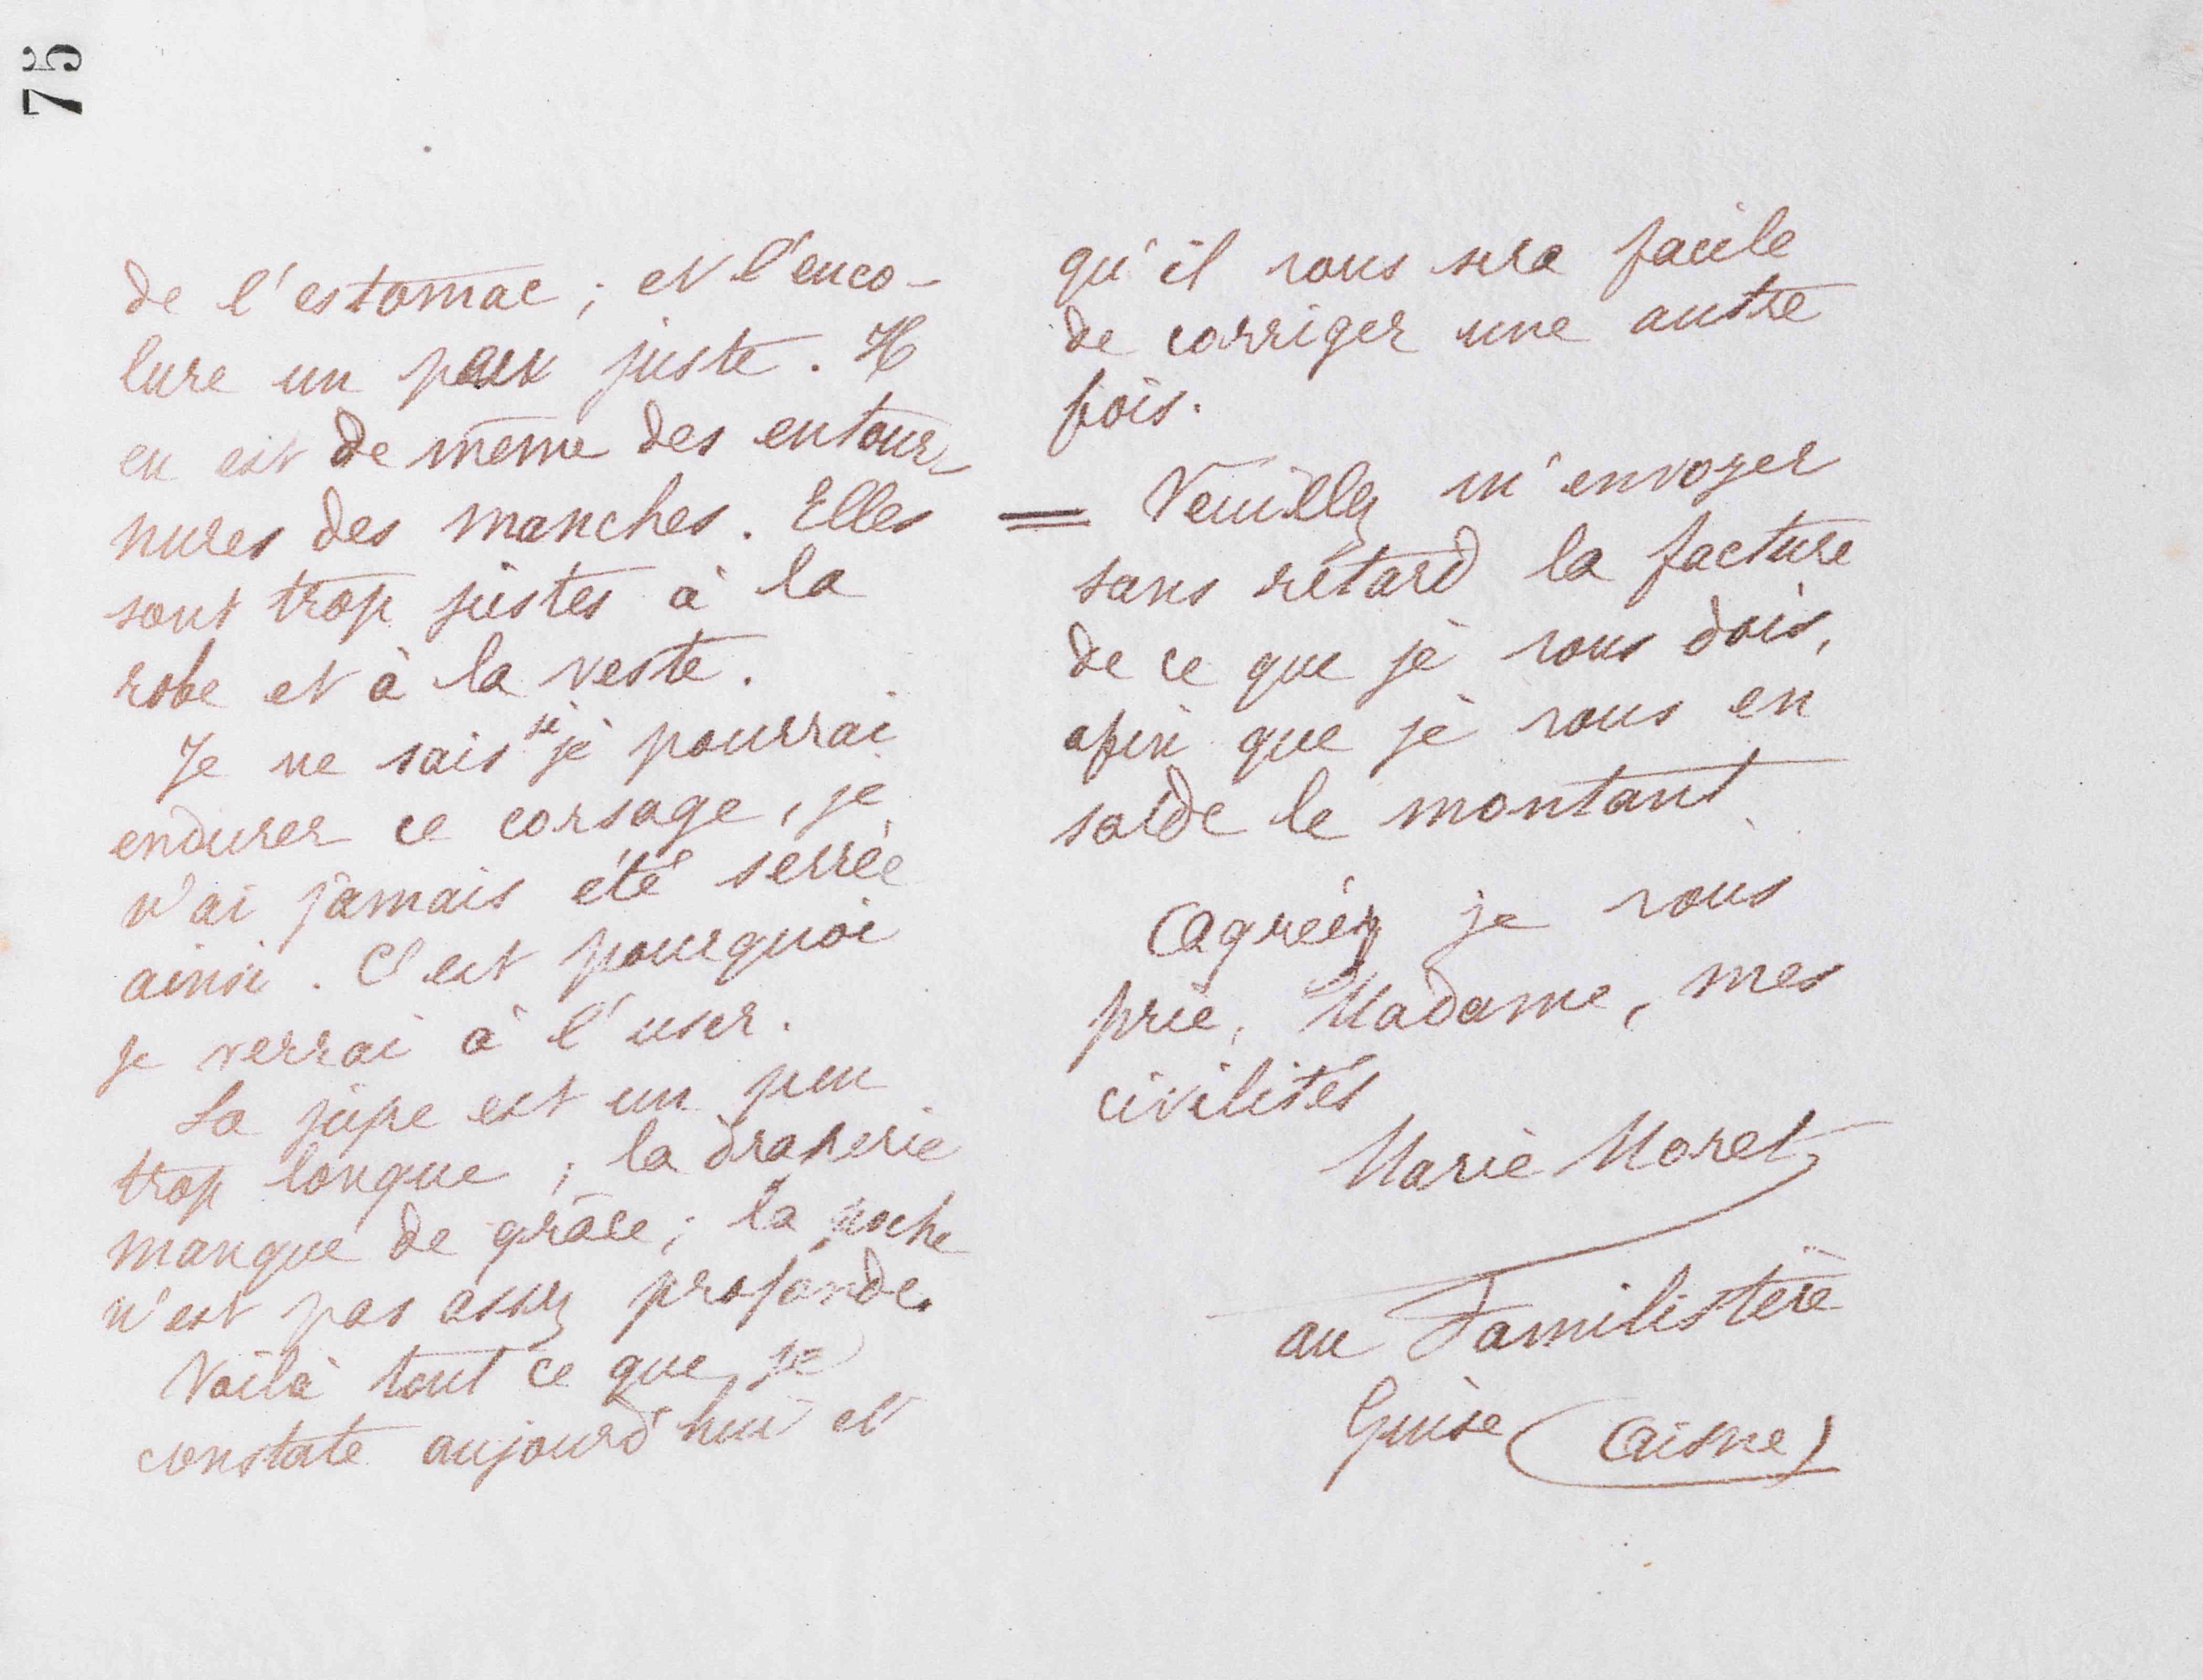 75
de l'estomac ; et l'enco-
lure un peu juste. Il
en est de même des entour-
nures des manches. Elles
sont trop justes à la
robe et à la veste.
Je ne sais si je pourrai
endurer ce corsage, je
n'ai jamais été serrée
ainsi. C'est pourquoi
je verrai à l'user.
La jupe est un peu
trop longue ; la draperie
manque de grâce ; la poche
n'est pas assez profonde.
Voilà tout ce que je
constate aujourd'hui et
qu'il vous sera facile
de corriger une autre
fois.
= Veuillez m'envoyer
sans retard la facture
de ce que je vous dois,
afin que je vous en
solde le montant.
Agréez je vous
prie, Madame, mes
civilités
Marie Moret
au Familistère
Guise (Aisne)